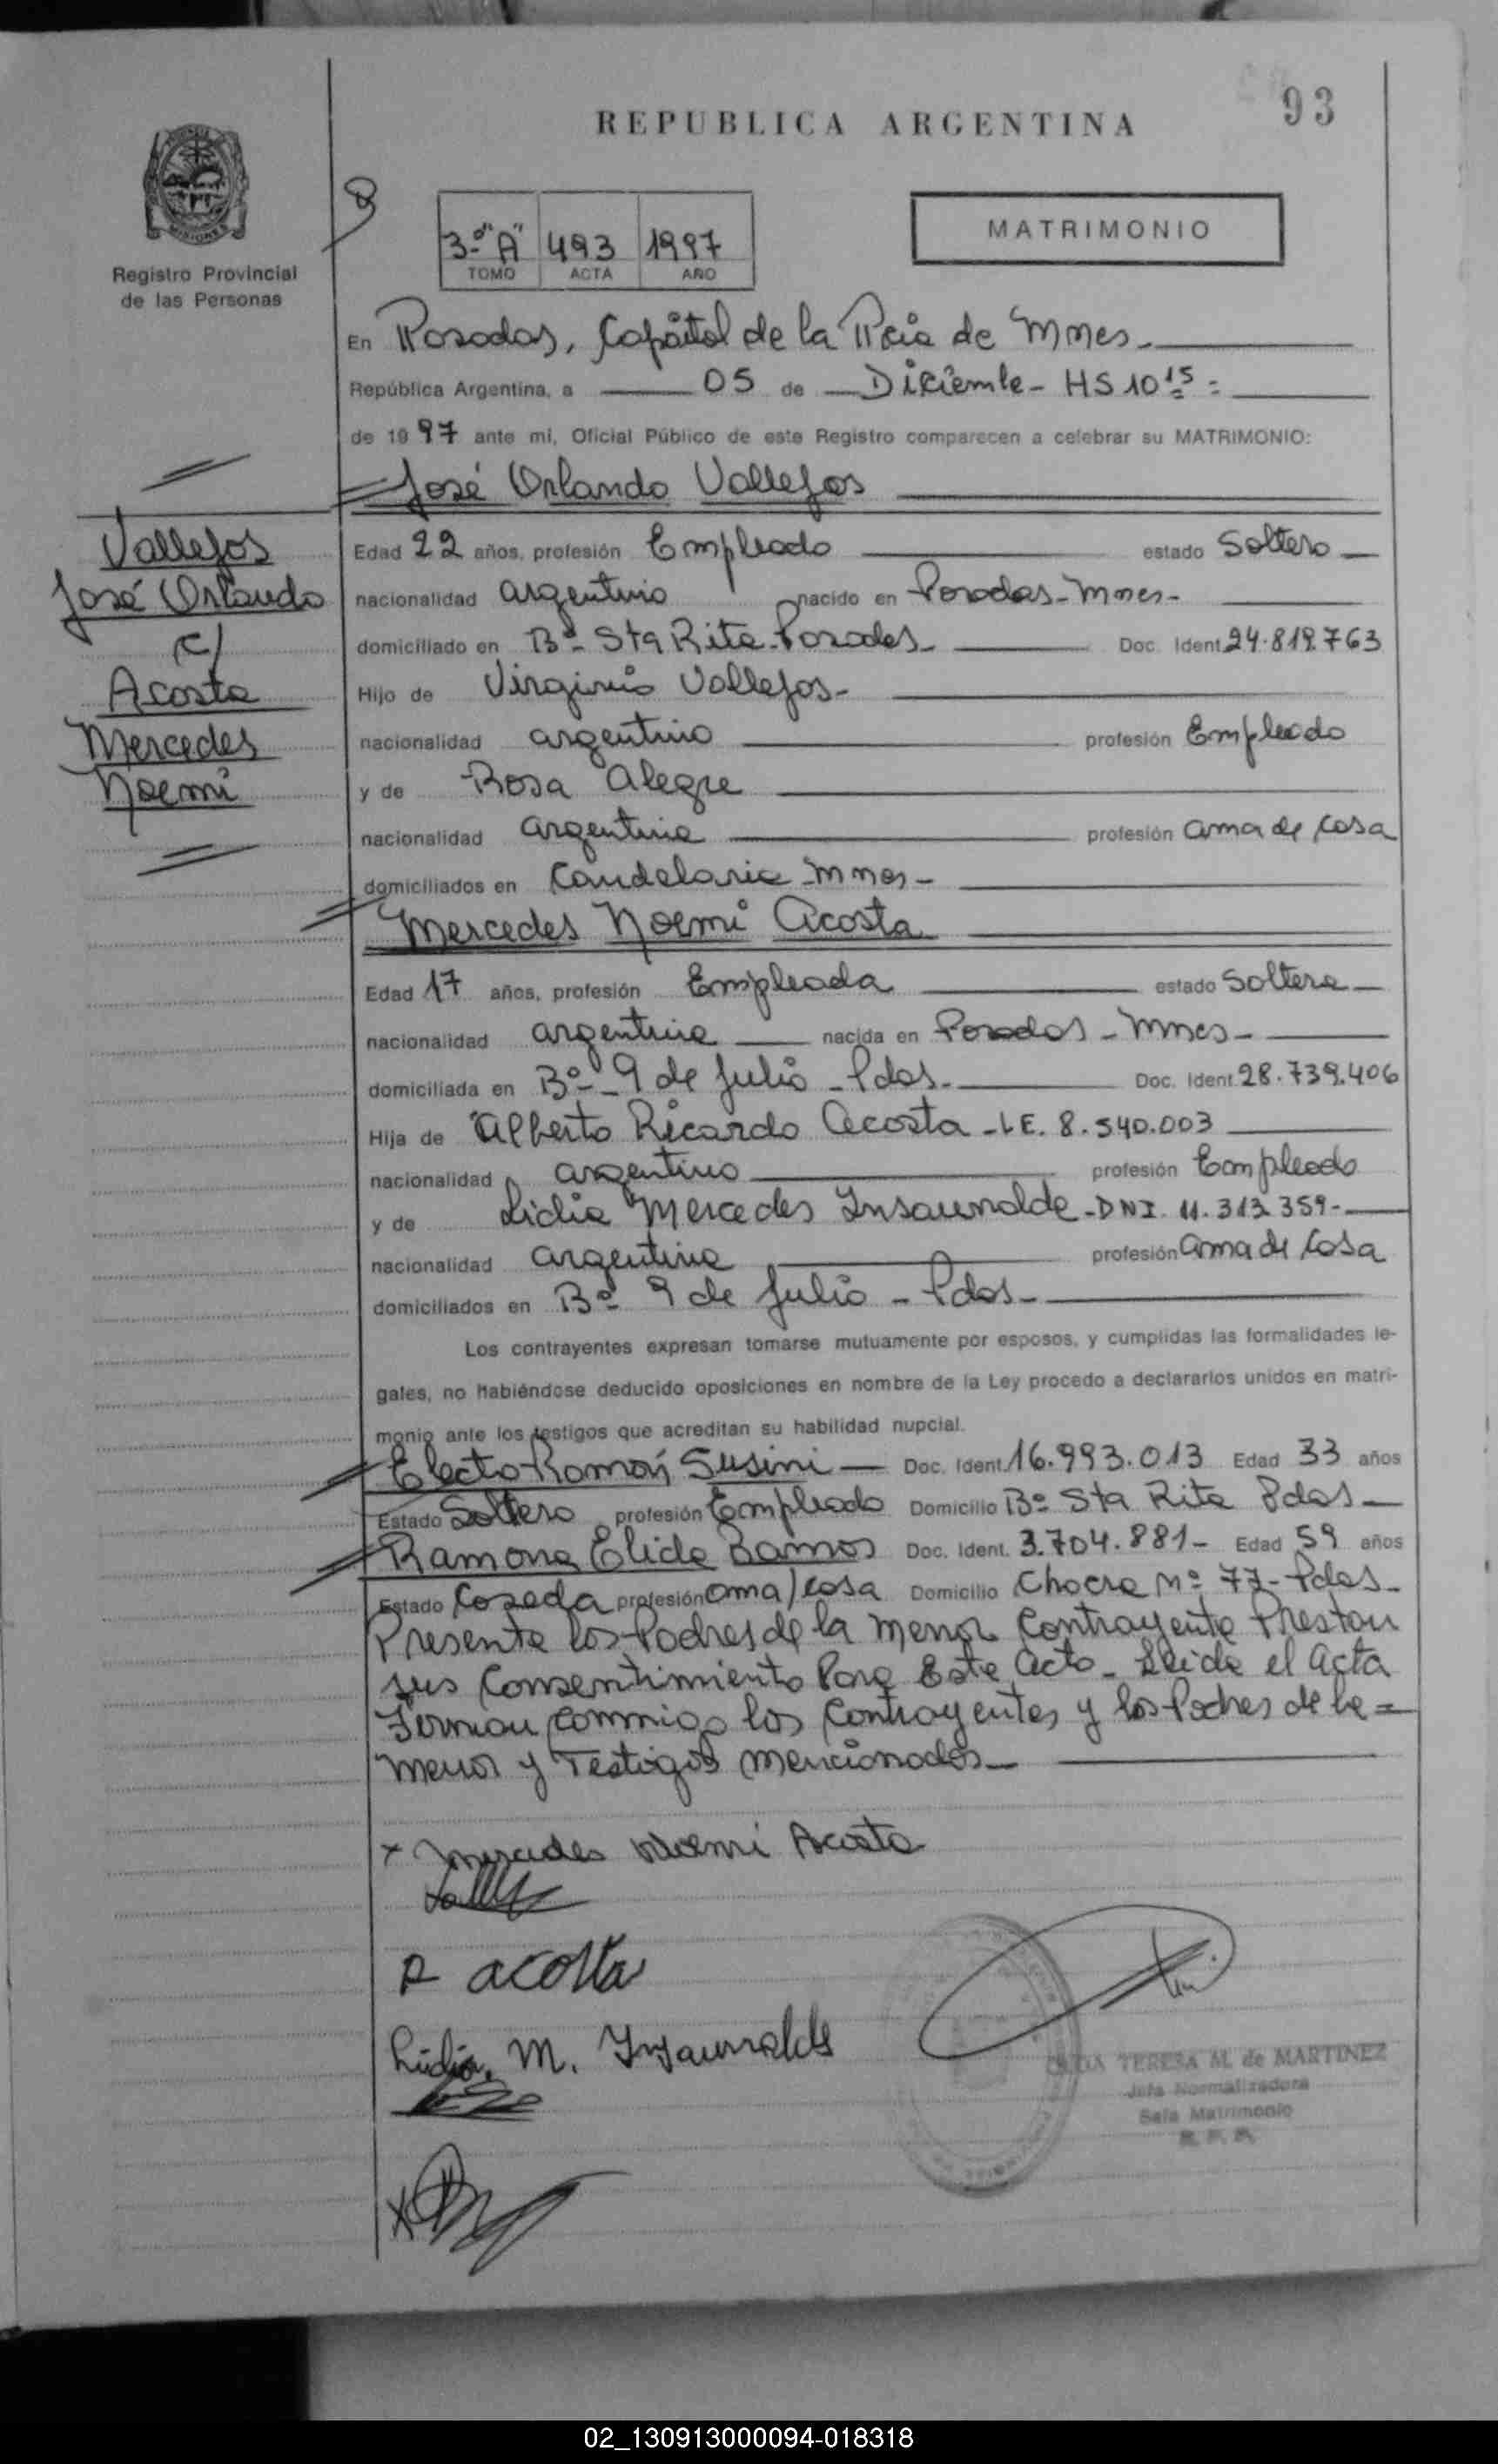 REPUBLICA ARGENTINA
93
MISIONES
Registro Provincial
de las Personas
3º "A" 493 1997
TOMO ACTA AÑO
MATRIMONIO
En Posadas, Capital de la Pcia de Mnes.
República Argentina, a 05 de Diciembre - HS 10 15 =
de 1997 ante mi, Oficial Público de este Registro comparecen a celebrar su MATRIMONIO:
José Orlando Vallejos
Vallejos
José Orlando
c/
Acosta
Mercedes
Noemi
Edad 22 años, profesión Empleado estado Soltero
nacionalidad argentino nacido en Posadas - Mnes -
domiciliado en Bº - Sta Rita - Posadas - Doc. Ident. 24.819.763
Hijo de Virginio Vallejos -
nacionalidad argentino profesión Empleado
y de Rosa Alegre
nacionalidad argentina profesión ama de casa
domiciliados en Candelaria - Mnes -
Mercedes Noemi Acosta
Edad 17 años, profesión Empleada estado Soltera
nacionalidad argentina nacida en Posadas - Mnes -
domiciliada en Bº - 9 de Julio - Pdas. Doc. Ident. 28.739.406
Hija de Alberto Ricardo Acosta - LE. 8.540.003
nacionalidad argentino profesión Empleado
y de Lidia Mercedes Insaurralde - DNI. 11.313.359 -
nacionalidad argentina profesión ama de casa
domiciliados en Bº 9 de Julio - Pdas -
Los contrayentes expresan tomarse mutuamente por esposos, y cumplidas las formalidades le-
gales, no habiéndose deducido oposiciones en nombre de la Ley procedo a declararlos unidos en matri-
monio ante los testigos que acreditan su habilidad nupcial.
Electo Ramón Susini Doc. Ident. 16.993.013 Edad 33 años
Estado Soltero profesión Empleado Domicilio Bº Sta Rita Pdas -
Ramona Elida Ramos Doc. Ident. 3.704.881 - Edad 59 años
Estado Casada profesión ama/casa Domicilio Chacra Nº 77 - Pdas -
Presente los Padres de la menor Contrayente Prestan
sus Consentimiento Para Este Acto - Leida el Acta
Firman conmigo los Contrayentes y los Padres de la =
menor y Testigos mencionados -
x Mercedes Noemi Acosta
R acosta
Lidia, M. Insaurralde
TERESA M. de MARTINEZ
Jefa Normalizadora
Sala Matrimonio
R. P. P.
02_130913000094-018318